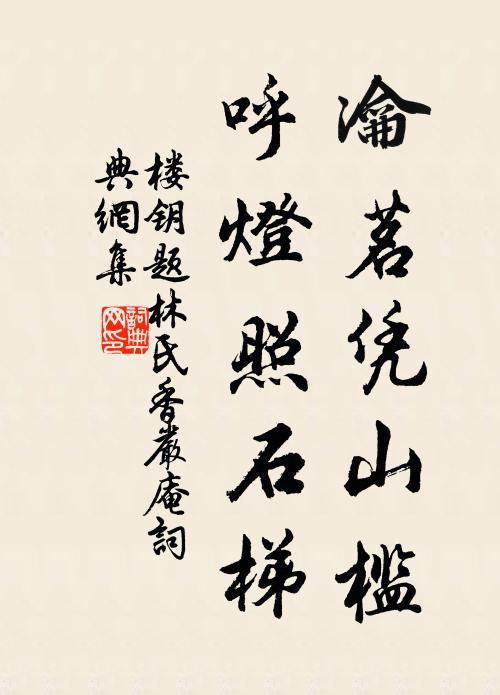 瀹茗凭山槛
呼燈照石梯
楼钥题林氏香嚴庵詞
典網集
詞典网印